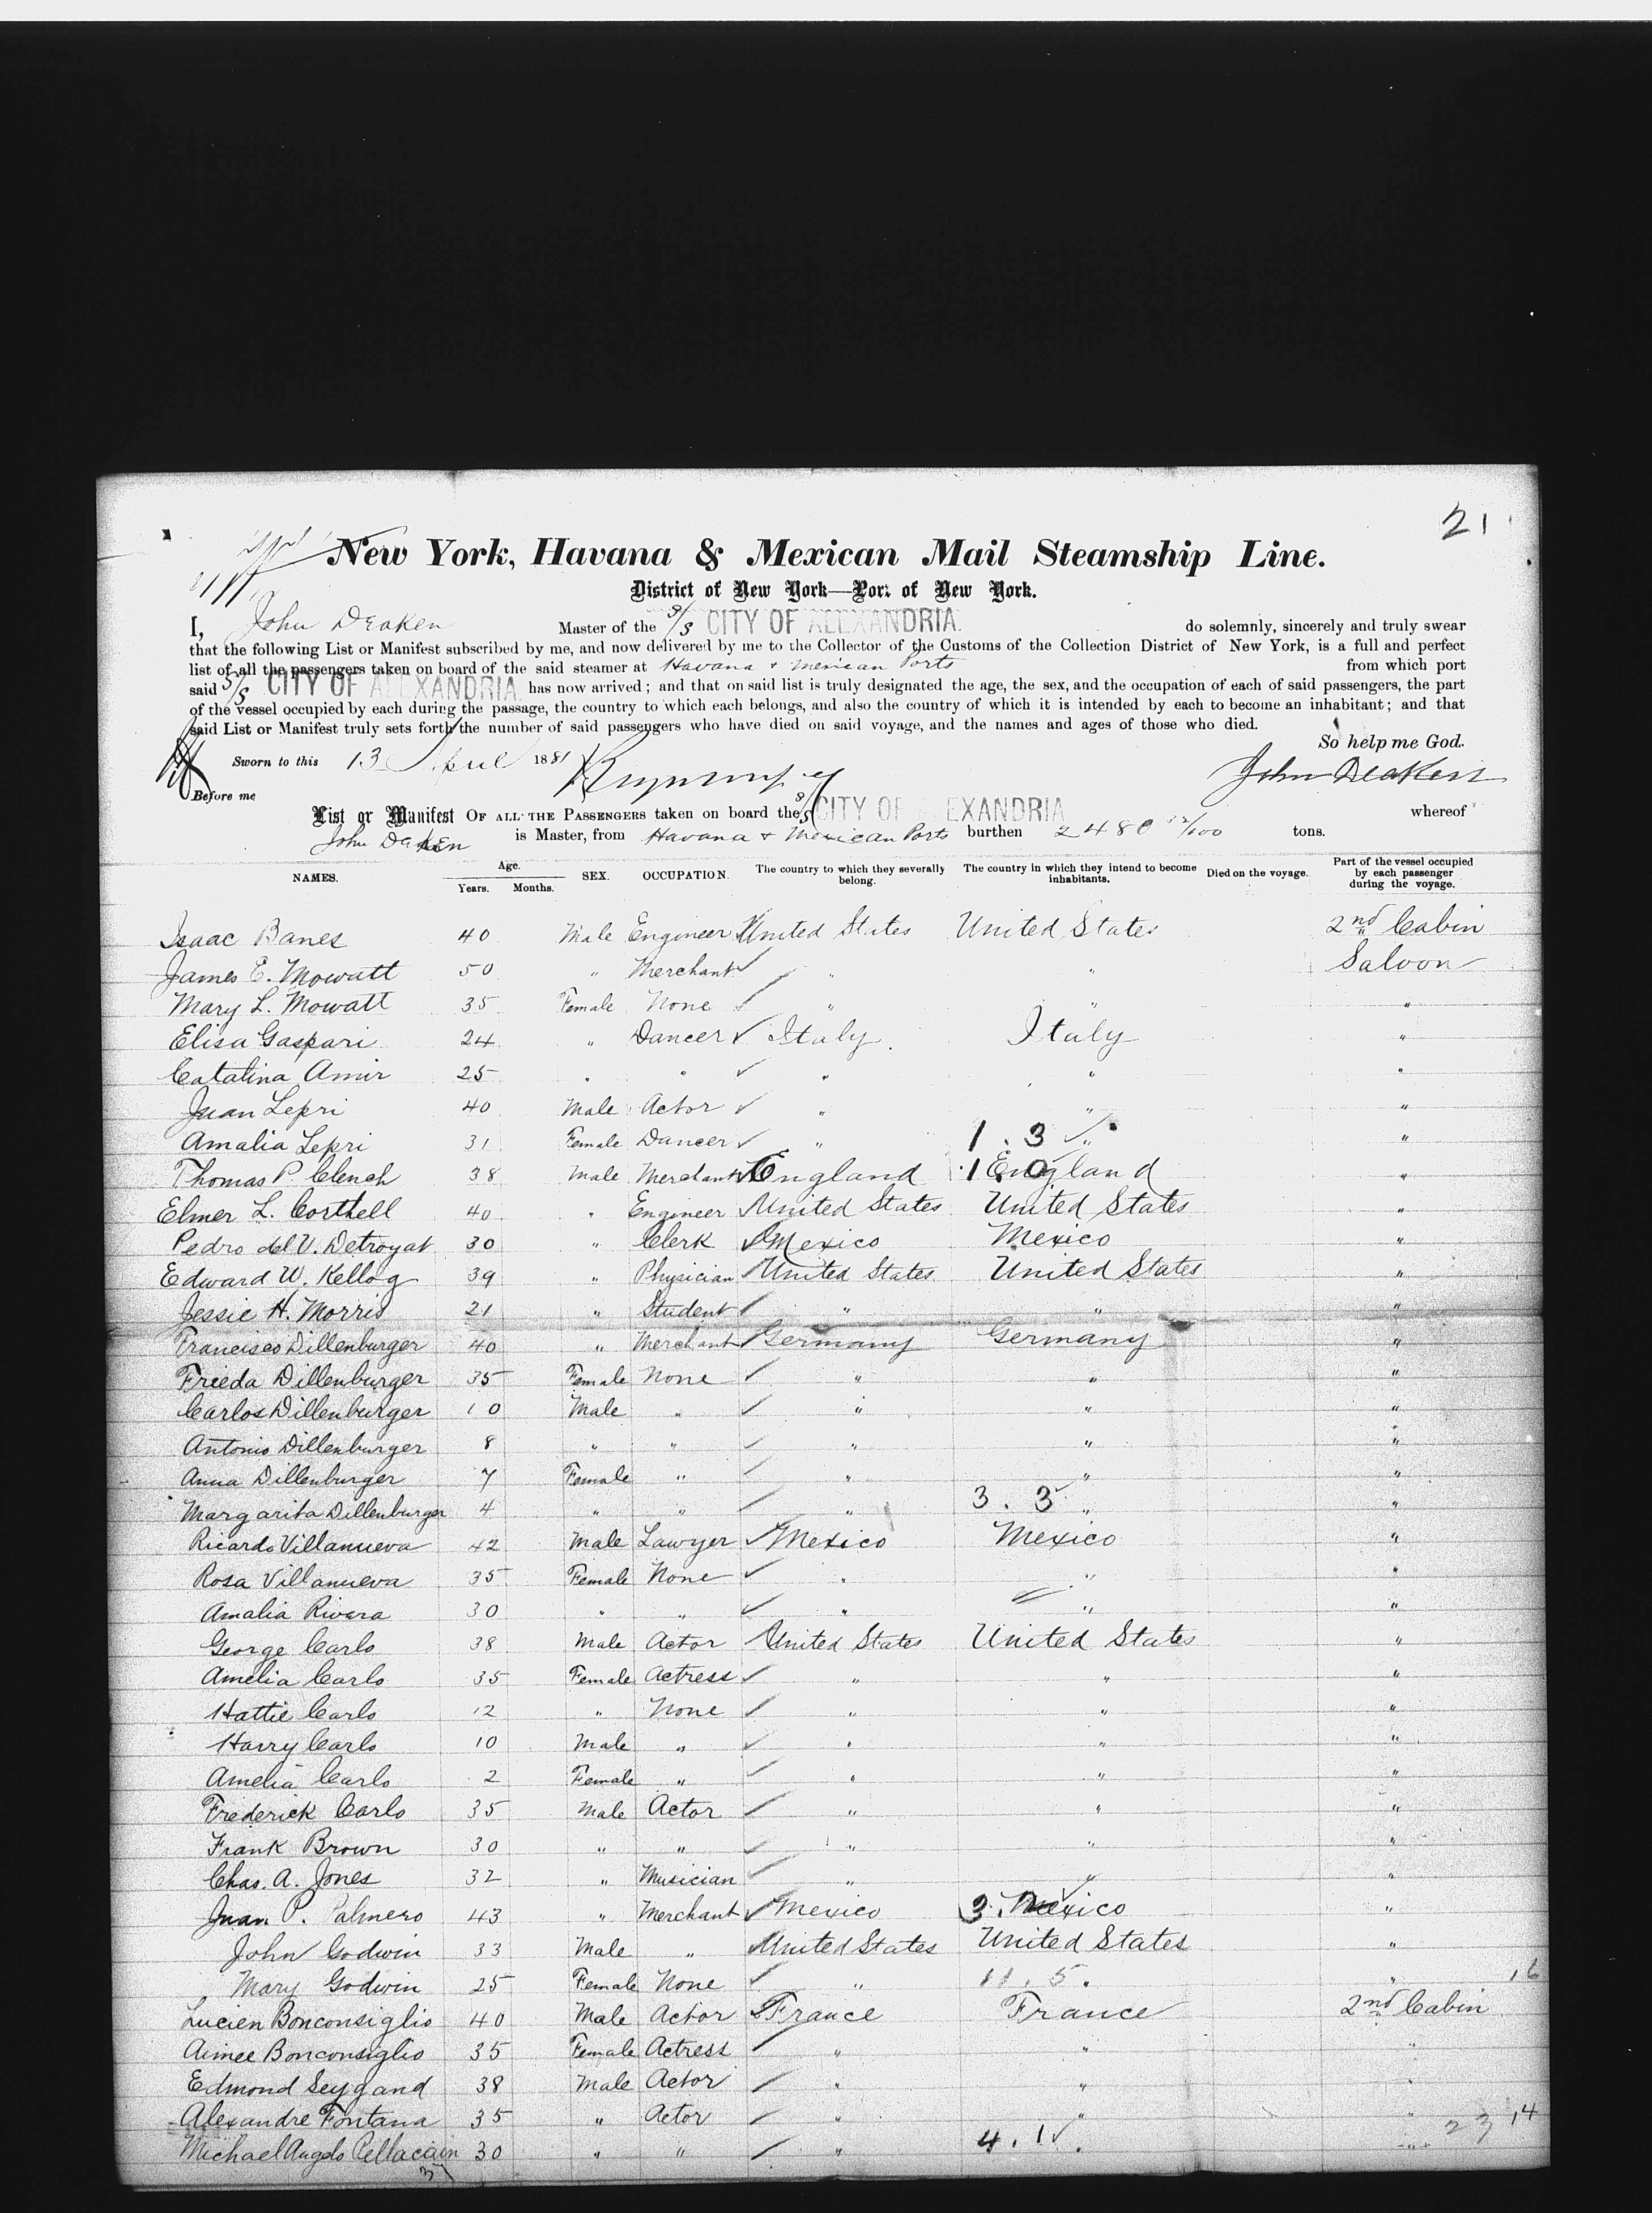 21
New York, Havana & Mexican Mail Steamship Line.
District of New York—Port of New York.
I, John Deaken Master of the S/S CITY OF ALEXANDRIA. do solemnly, sincerely and truly swear
that the following List or Manifest subscribed by me, and now delivered by me to the Collector of the Customs of the Collection District of New York, is a full and perfect
list of all the passengers taken on board of the said steamer at Havana & Mexican Ports from which port
said S/S CITY OF ALEXANDRIA has now arrived; and that on said list is truly designated the age, the sex, and the occupation of each of said passengers, the part
of the vessel occupied by each during the passage, the country to which each belongs, and also the country of which it is intended by each to become an inhabitant; and that
said List or Manifest truly sets forth the number of said passengers who have died on said voyage, and the names and ages of those who died.
So help me God.
Sworn to this 13 April 1881 John Deaken
Before me
List or Manifest OF ALL THE PASSENGERS taken on board the S/S CITY OF ALEXANDRIA whereof
John Deaken is Master, from Havana & Mexican Ports burthen 2480 12/100 tons.
NAMES. Age. Years. Months. SEX. OCCUPATION. The country to which they severally belong. The country in which they intend to become inhabitants. Died on the voyage. Part of the vessel occupied by each passenger during the voyage.
Isaac Banes 40 Male Engineer United States United States 2nd Cabin
James E. Mowatt 50 " Merchant " " Saloon
Mary L. Mowatt 35 Female None " " "
Elisa Gaspari 24 " Dancer Italy Italy "
Catalina Amir 25 " " " " "
Juan Lepri 40 Male Actor " " "
Amalia Lepri 31 Female Dancer " 1 . 3 " "
Thomas P. Clench 38 Male Merchant England 1 . 0 England "
Elmer L. Corthell 40 " Engineer United States United States "
Pedro del V. Detroyat 30 " Clerk Mexico Mexico "
Edward W. Kellog 39 " Physician United States United States "
Jessie H. Morris 21 " Student " " "
Francisco Dillenburger 40 " Merchant Germany Germany "
Frieda Dillenburger 35 Female None " " "
Carlos Dillenburger 10 Male " " " "
Antonio Dillenburger 8 " " " " "
Anna Dillenburger 7 Female " " " "
Margarita Dillenburger 4 " " " 3 . 3 " "
Ricardo Villanueva 42 Male Lawyer Mexico Mexico "
Rosa Villanueva 35 Female None " " "
Amalia Rivera 30 " " " " "
George Carlo 38 Male Actor United States United States "
Amelia Carlo 35 Female Actress " " "
Hattie Carlo 12 " None " " "
Harry Carlo 10 Male " " " "
Amelia Carlo 2 Female " " " "
Frederick Carlo 35 Male Actor " " "
Frank Brown 30 " " " " "
Chas. A. Jones 32 " Musician " " "
Juan P. Palmero 43 " Merchant Mexico 3. Mexico "
John Godwin 33 Male " United States United States "
Mary Godwin 25 Female None " 11 . 5 . " 16
Lucien Bonconsiglio 40 Male Actor France France 2nd Cabin
Aimee Bonconsiglio 35 Female Actress " " "
Edmond Seygand 38 Male Actor " " "
Alexandre Fontana 35 " Actor " " " 23 14
Michael Angelo 30 " " " 4 . 1 "
37